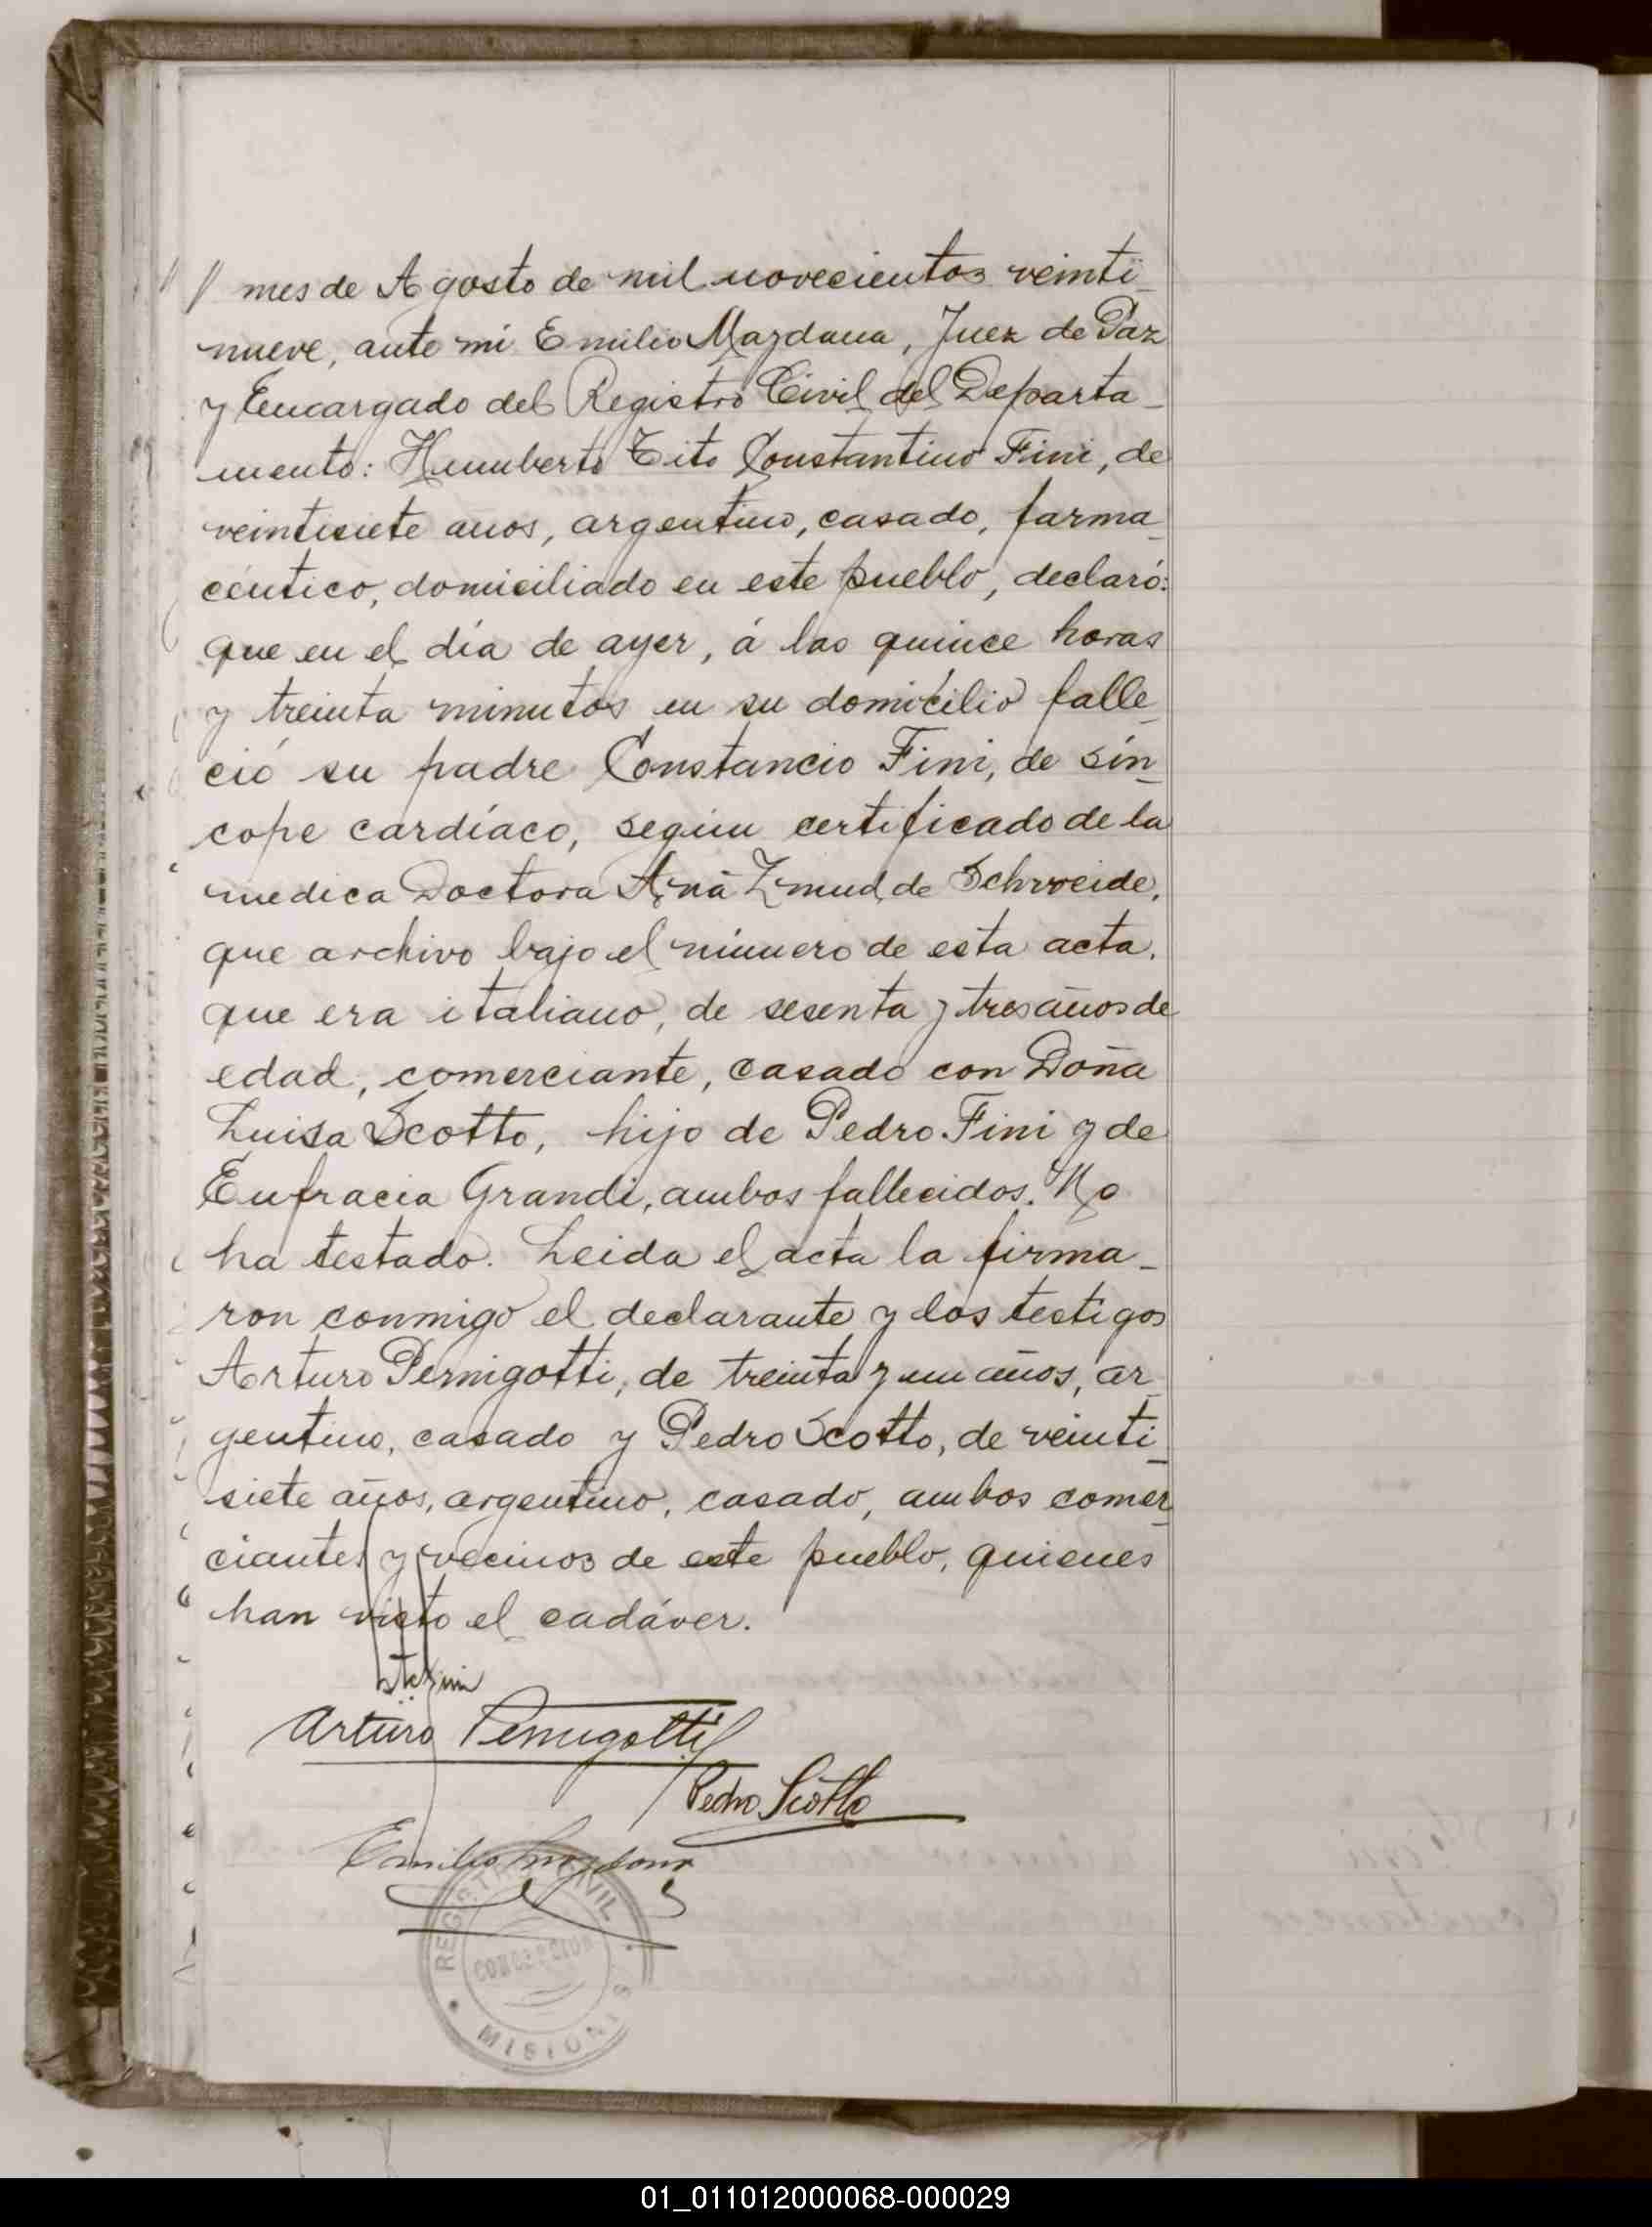 // mes de Agosto de mil novecientos veinti_
nueve, ante mi Emilio Mazdana, Juez de Paz
y Encargado del Registro Civil del Departa_
mento: Humberto Tito Constantino Fini, de
veintisiete anos, argentino, casado, farma_
céutico, domiciliado en este pueblo, declaró:
que en el día de ayer, á las quince horas
y treinta minutos en su domicilio falle_
ció su padre Constancio Fini, de sín_
cope cardíaco, según certificado de la
medica Doctora Ana Zmud de Schrveide,
que archivo bajo el número de esta acta.
que era italiano, de sesenta y tres años de
edad, comerciante, casado con Doña
Luisa Scotto, hijo de Pedro Fini y de
Eufracia Grandi, ambos fallecidos. No
ha testado. Leida el acta la firma_
ron conmigo el declarante y los testigos
Arturo Pernigotti, de treinta y un años, ar_
gentino, casado y Pedro Scotto, de veinti_
siete años, argentino, casado, ambos comer_
ciantes y vecinos de este pueblo, quienes
han visto el cadáver.
Arturo Pernigotti
Pedro Scotto
Emilio
REGISTRO CIVIL
CONCEPCION
MISIONES
01_011012000068-000029